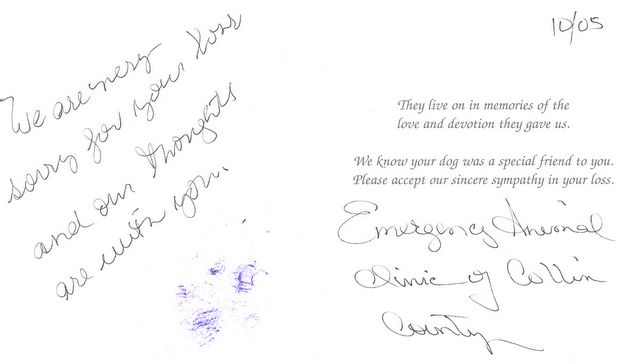 We are very
sorry for your loss
and our thoughts
are with you.
10/05
They live on in memories of the
love and devotion they gave us.
We know your dog was a special friend to you.
Please accept our sincere sympathy in your loss.
Emergency Animal
Clinic of Collin
County